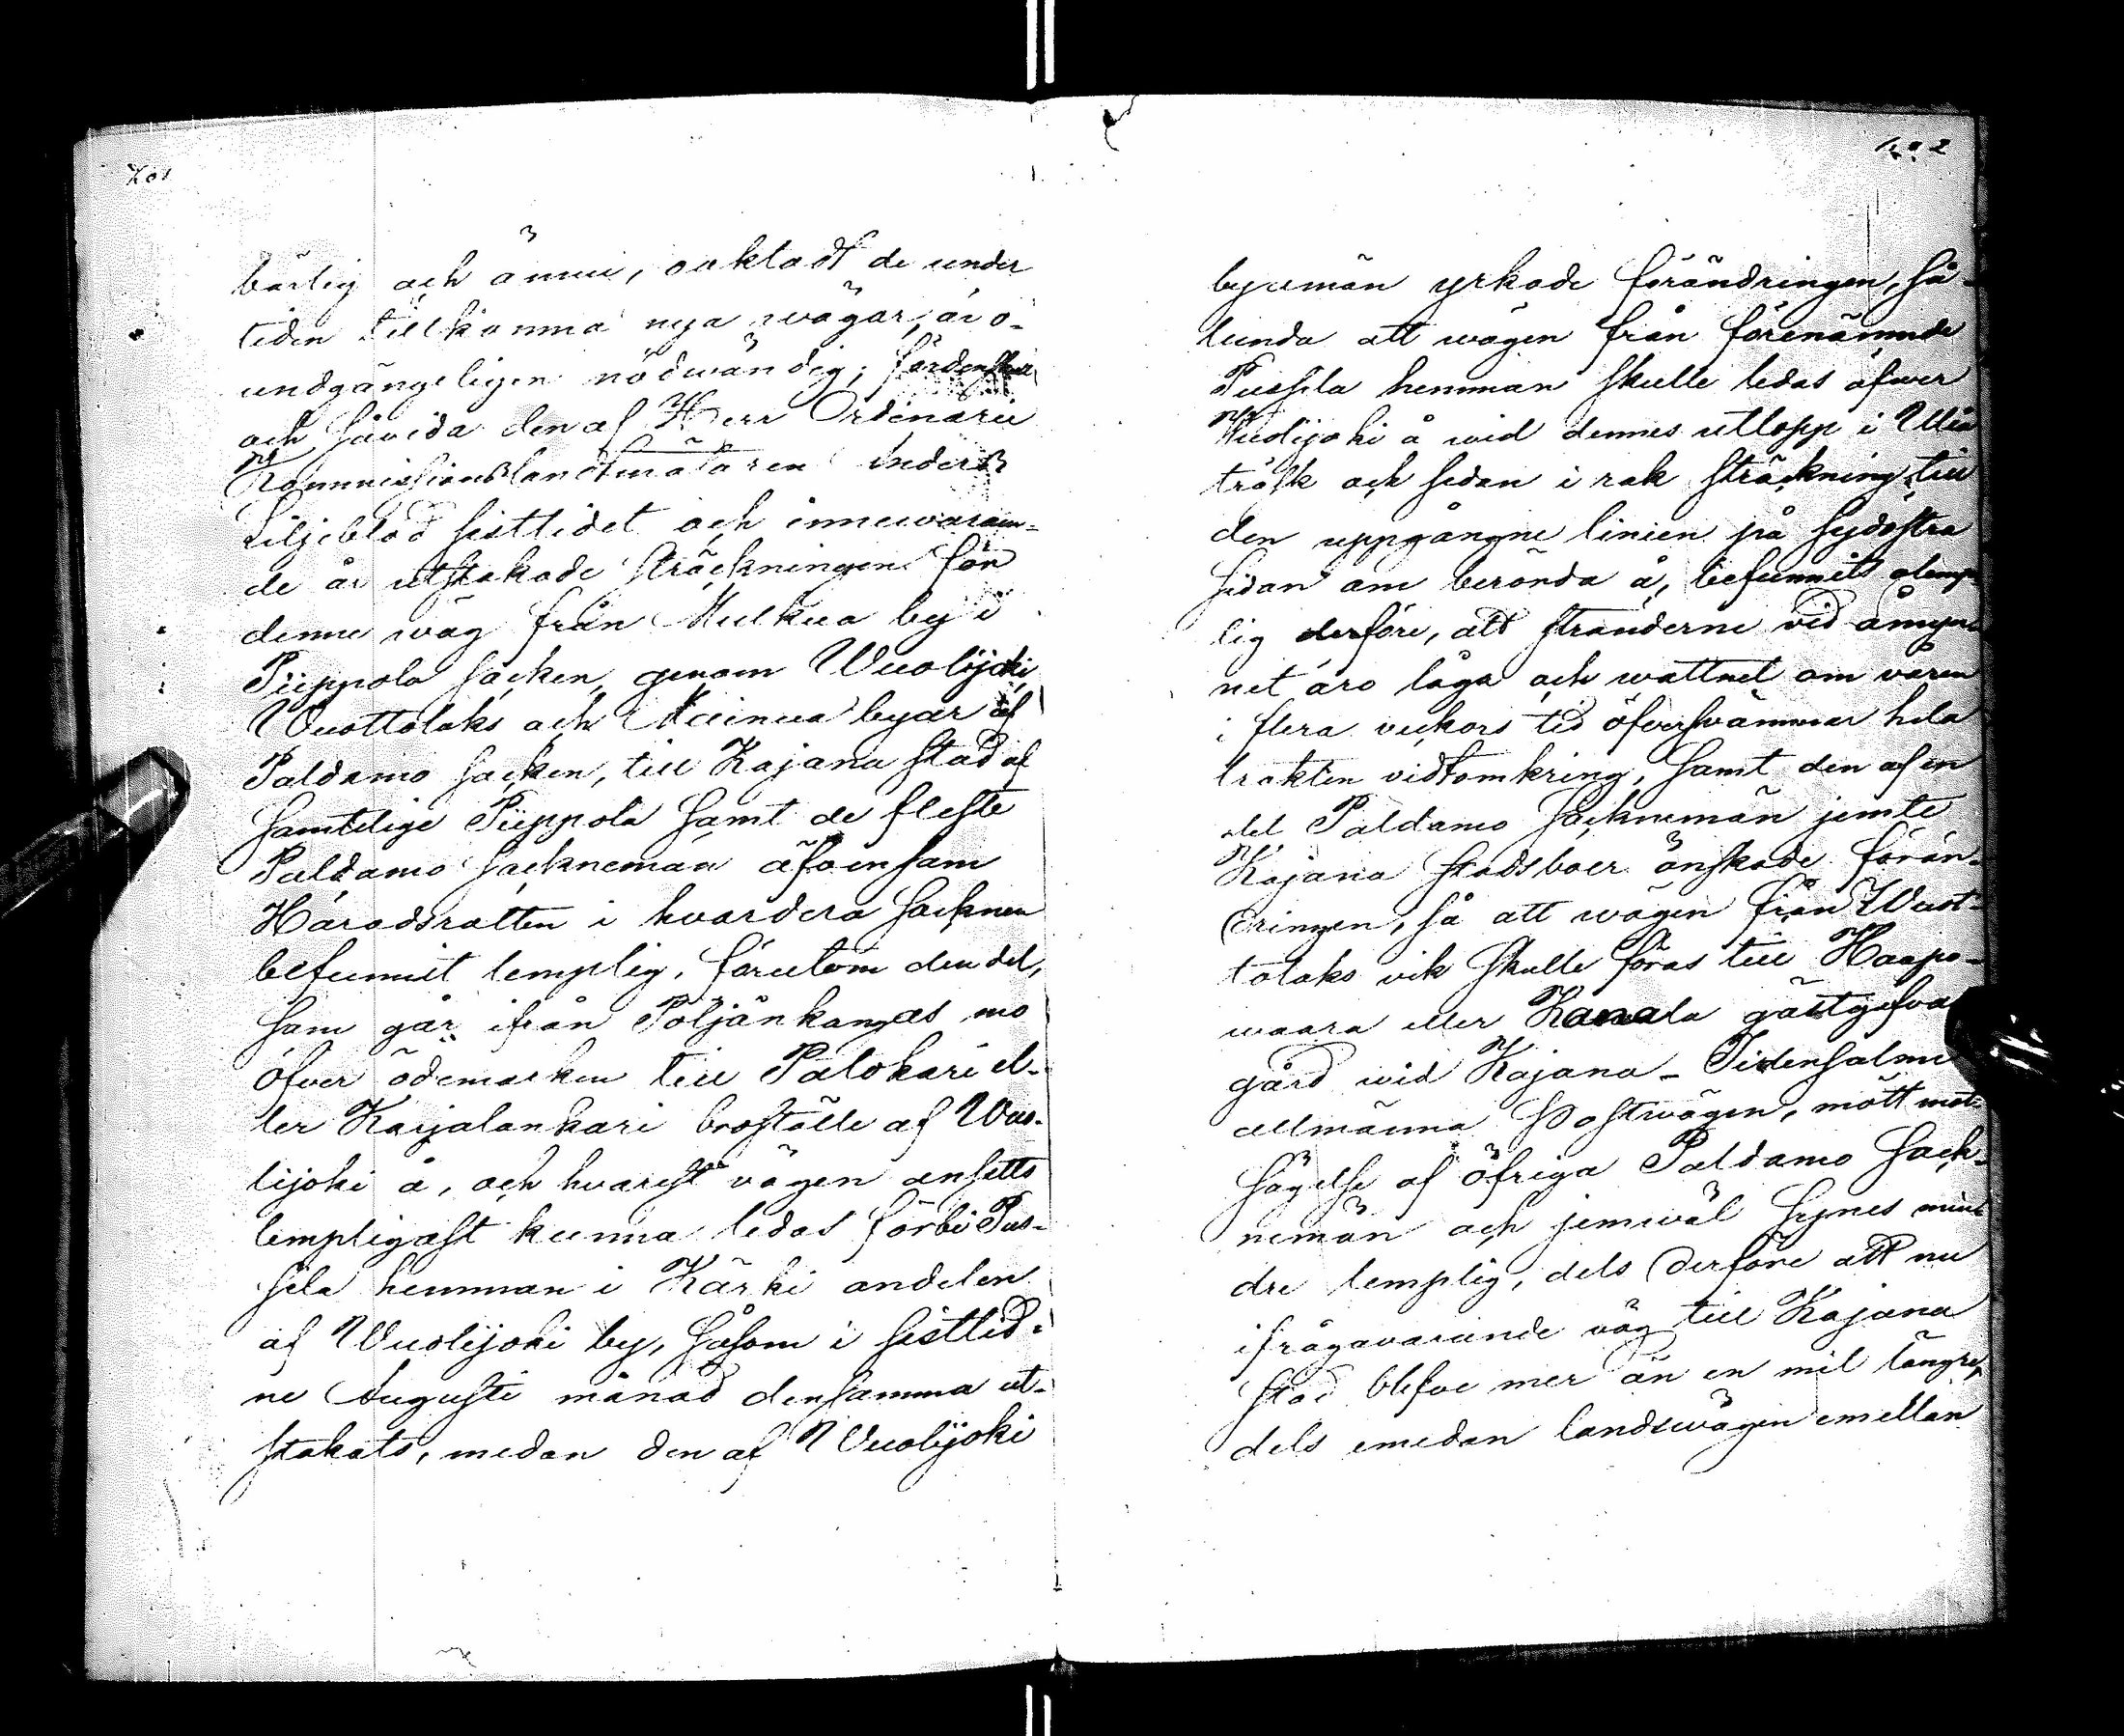 bärlig och ännu, oaktadt de under
tiden tillkomna nya wägar, äro-
undgängeligen nödwändig; fördenskull
och såvida den af Herr Ordinarie
Kommissionslandtmätaren Anders
Liljeblad sistlidet och innewaran-
de år utstakade sträckningen för
denne wäg från Mulkua by i
Piippola socken, genom Wuolijoki,
Wuottolaks och Mainua byar af
Paldamo socken, till Kajana stad af
samtelige Piippola samt de fleste
Paldamo socknemän äfvensom
Häradsrätten i hvardera socknen
befunnit lemplig, förutom den del,
som går ifrån Pöljänkangas mo
öfver ödemarken till Palokari el-
ler Karjalankari broställe af Wuo-
lijoki å, och hvarest vägen ansetts
lempligast kunna ledas förbi Pus-
sila hemman i Kärki andelen
af Wuolijoki by, såsom i sistlid-
ne Augusti månad densamma ut-
stakats, medan den af Wuolijoki
402
byemän yrkade förändringen, så-
lunda att wägen från förenämnde
Pussila hemman skulle ledas öfwer
Wuolijoki å wid dennes utlopp i Uleå
träsk och sedan i rak sträckning till
den uppgångne linien på sydostra
sidan om berörda å, befunnits olemp-
lig derföre, att stränderne vid åmyn-
net äro låga och wattnet om våren
i flera veckors tid öfversvämmar hela
trakten vidtomkring, samt den af en
del Paldamo socknemän jemte
Kajana stadsboer önskade förän-
dringen, så att wägen från Wuot-
tolaks vik skulle föras till Haapo-
waara eller Kanala gästgifva
gård wid Kajana - Iidensalmi
allmänna postwägen, mött mot-
sägelse af öfriga Paldamo sock-
nemän och jemwäl synes min-
dre lemplig, dels derföre att nu
ifrågavarande väg till Kajana
stad blefve mer än en mil längre,
dels emedan landswägen emellan